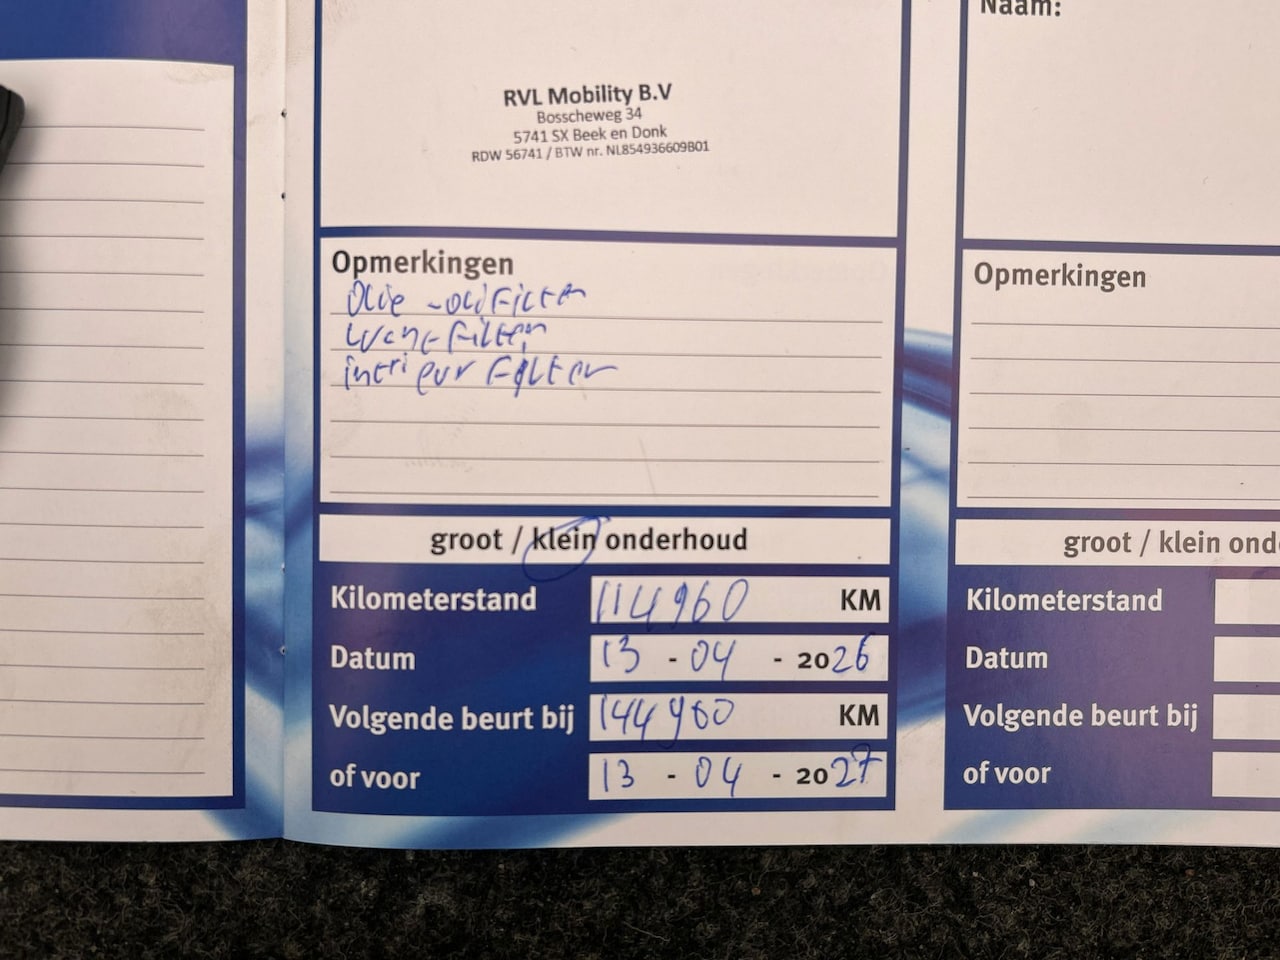 Naam:
RVL Mobility B.V
Bosscheweg 34
5741 SX Beek en Donk
RDW 56741 / BTW nr. NL854936609B01
Opmerkingen
Olie - oliefilter
Luchtfilter
interieur Filter
groot / klein onderhoud
Kilometerstand 114960 KM
Datum 13 - 04 - 2026
Volgende beurt bij 144960 KM
of voor 13 - 04 - 2027
Opmerkingen
groot / klein ond
Kilometerstand
Datum
Volgende beurt bij
of voor